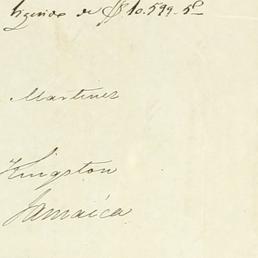 liquido de $ 10.599-5º
Martinez
Kingston
Jamaica